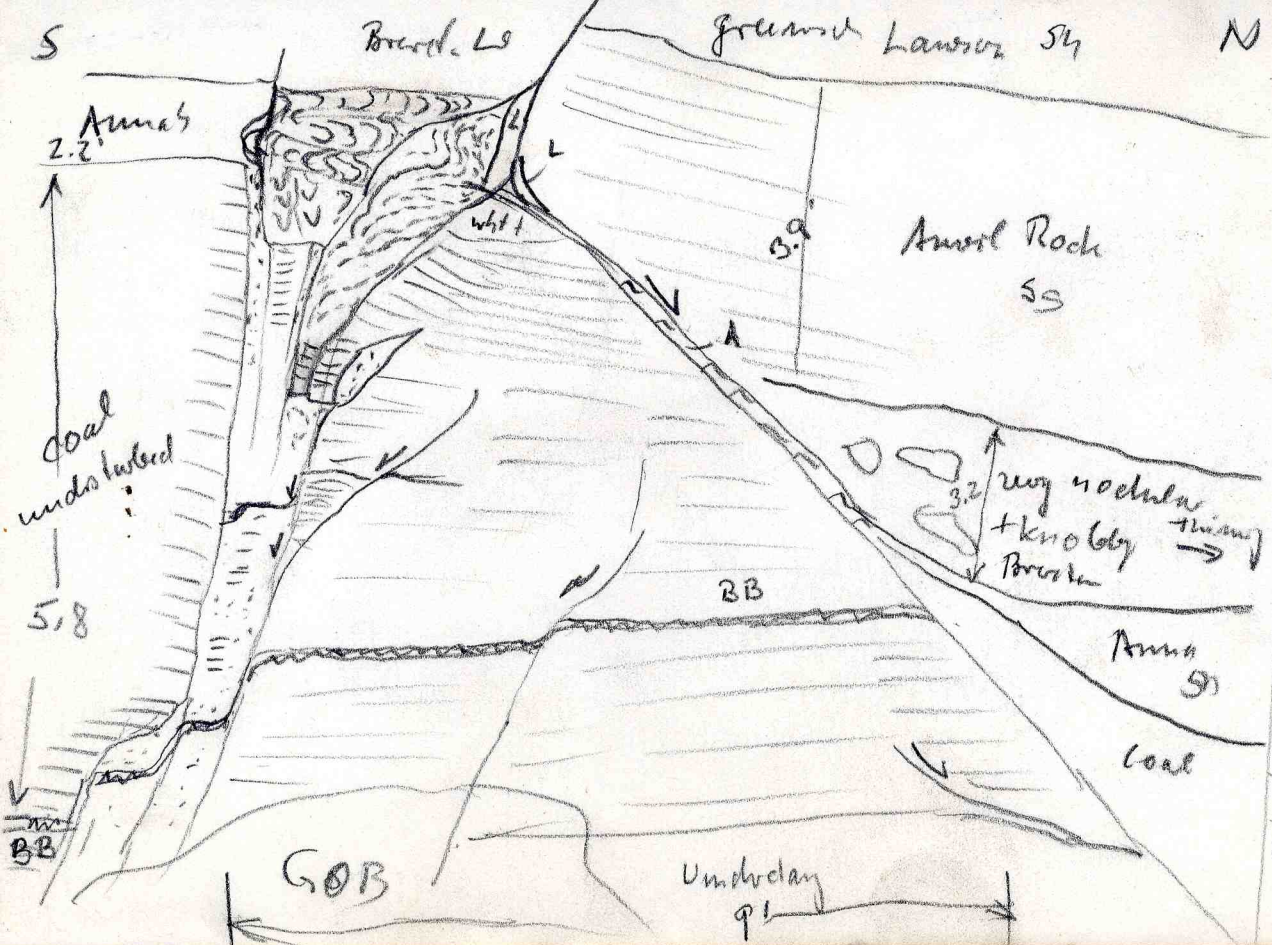 S
Brerct. Ls
Greenish Lawson Sh
N
Anna S
2.2'
L
L
whtt
3.9'
Anvil Rock
SS
A
coal
undisturbed
5,8
very nodular
3,2
+ knobby
thinning
BB
Anna
Sh
Coal
BB
GOB
Underclay
9'